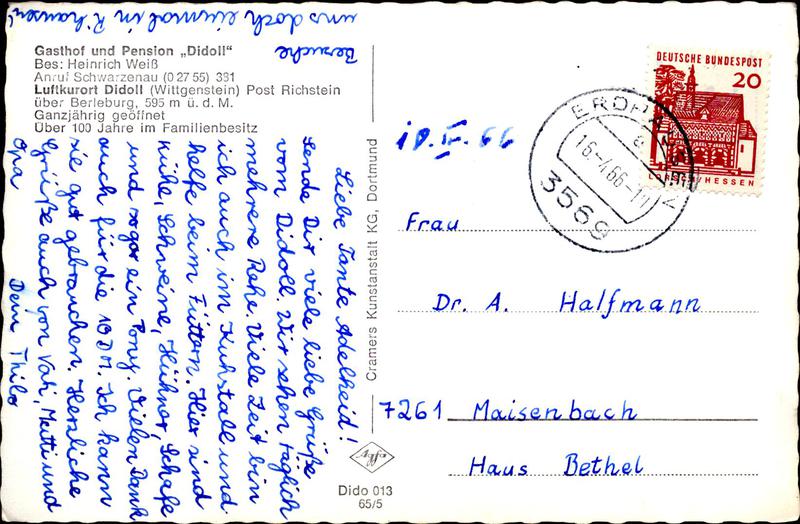 Gasthof und Pension „Didoll"
Bes: Heinrich Weiß
Anruf Schwarzenau (0 27 55) 331
Luftkurort Didoll (Wittgenstein) Post Richstein
über Berleburg, 595 m ü. d. M.
Ganzjährig geöffnet
Über 100 Jahre im Familienbesitz
Liebe Tante Adelheid!
Sende Dir viele liebe Grüße
vom Didoll. Wir sehen täglich
mehrere Rehe. Viele Zeit bin
ich auch im Kuhstall und
helfe beim Füttern. Hier sind
Kühe, Schweine, Hühner, Schafe
und sogar ein Pony. Vielen Dank
auch für die 10 DM. Ich kann
sie gut gebrauchen. Herzliche
Grüße auch von Vati, Mutti und
Opa
Dein Thilo
Besuche
uns doch einmal in
Cramers Kunstanstalt KG, Dortmund
Agfa
Dido 013
65/5
DEUTSCHE BUNDESPOST
20
LORSCH/HESSEN
16-4.66-11
3569
Frau
Dr. A. Halfmann
7261 Maisenbach
Haus Bethel